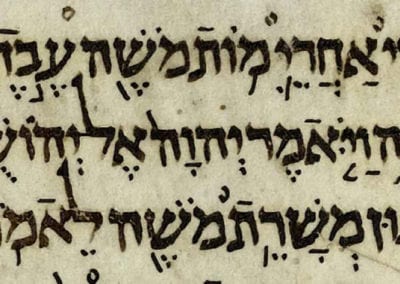 אַחֲרֵי מוֹת מֹשֶׁה עֶבֶד
וַיֹּאמֶר יְהוָה אֶל יְהוֹשֻׁ
נוּן מְשָׁרֵת מֹשֶׁה לֵאמֹ